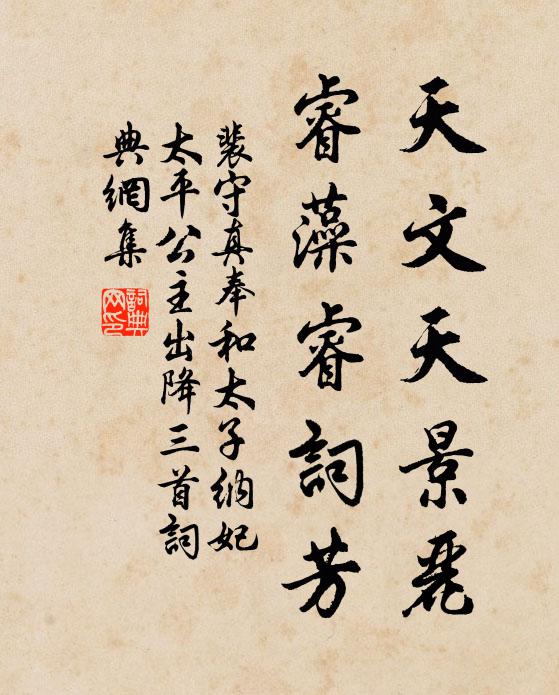 天文天景麗
睿藻睿詞芳
裴守真奉和太子納妃
太平公主出降三首詞
典網集
詞典網印